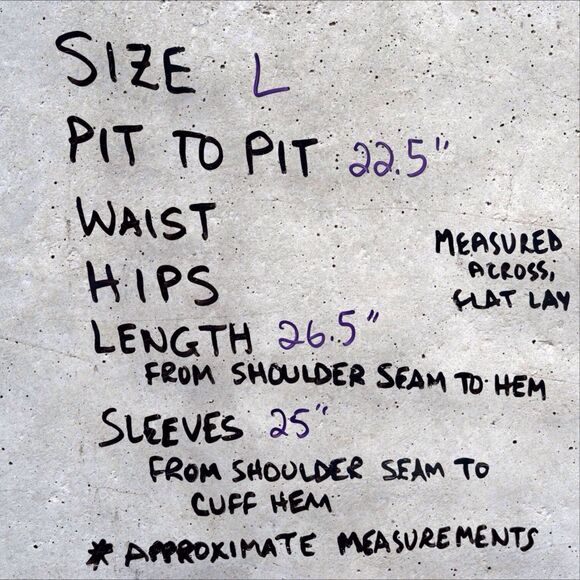 SIZE L
PIT TO PIT 22.5"
WAIST
MEASURED
ACROSS,
FLAT LAY
HIPS
LENGTH 26.5"
FROM SHOULDER SEAM TO HEM
SLEEVES 25"
FROM SHOULDER SEAM TO
CUFF HEM
* APPROXIMATE MEASUREMENTS